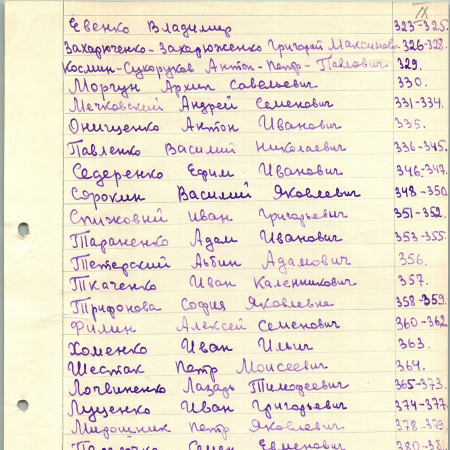 IX
Евенко Владимир 323-325.
Захарюченко-Захарюженко Григорий Максимов. 326-328.
Космин-Сухоруков Антон-Петр-Павлович 329.
Моргун Архип Савельевич 330.
Мечковский Андрей Семенович 331-334.
Онищенко Антон Иванович 335.
Павленко Василий Николаевич 336-345.
Седеренко Ефим Иванович 346-347.
Сорокин Василий Яковлевич 348-350
Спижовий Иван Григорьевич 351-352.
Тараненко Адам Иванович 353-355.
Тетерский Альбин Адамович 356.
Ткаченко Иван Каленникович 357.
Трифонова София Яковлевна 358-359.
Филин Алексей Семенович 360-362
Хоменко Иван Ильич 363.
Шестак Петр Моисеевич 364.
Логвиненко Лазарь Тимофеевич 365-373.
Луценко Иван Григорьевич 374-377.
Мирошник Петр Яковлевич 378-379.
Семен Евменович 380-381